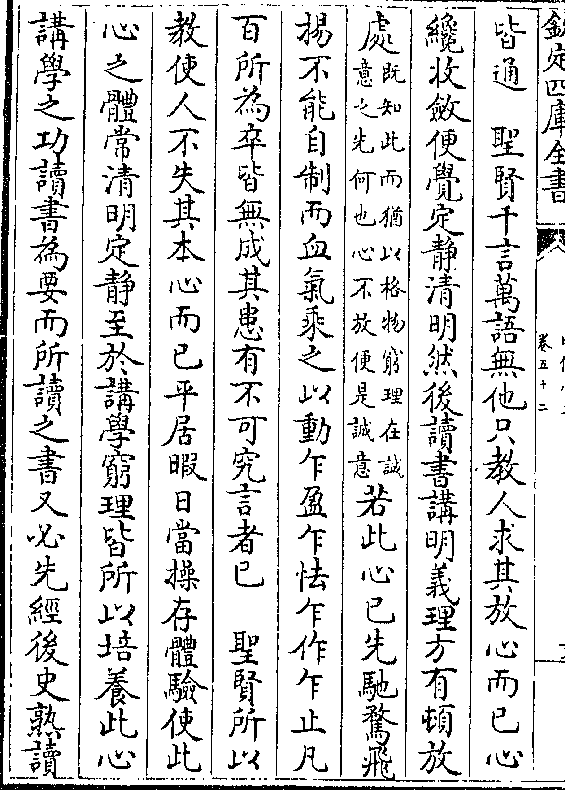 欽定四庫全書
卷五十二
皆通　聖賢千言萬語無他只教人求其放心而已心
纔收斂便覺定靜清明然後讀書講明義理方有頓放
處既知此而猶以格物窮理在誠
意之先何也心不放便是誠意若此心已先馳騖飛
揚不能自制而血氣乘之以動乍盈乍怯乍作乍止凡
百所為卒皆無成其患有不可究言者已　聖賢所以
教使人不失其本心而已平居暇日當操存體驗使此
心之體常清明定靜至於講學窮理皆所以培養此心
講學之功讀書為要而所讀之書又必先經後史熟讀